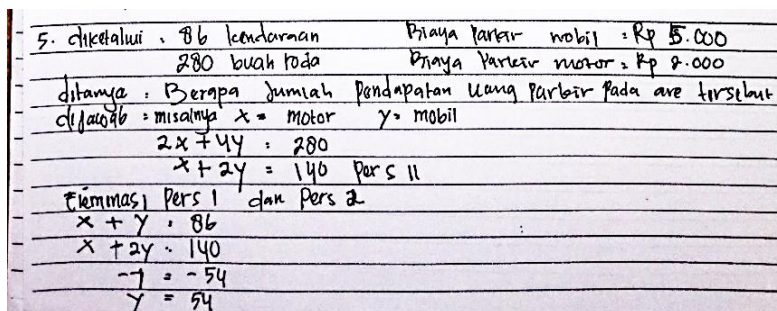 5. diketahui : 86 kendaraan Biaya Parkir mobil : Rp 5.000
280 buah roda Biaya Parkir motor : Rp 2.000
ditanya : Berapa Jumlah Pendapatan Uang Parkir Pada are tersebut
dijawab = misalnya x = motor y = mobil
2x + 4y = 280
x + 2y = 140 Pers 11
Eleminasi Pers 1 dan Pers 2
x + y = 86
x + 2y = 140
-y = -54
y = 54